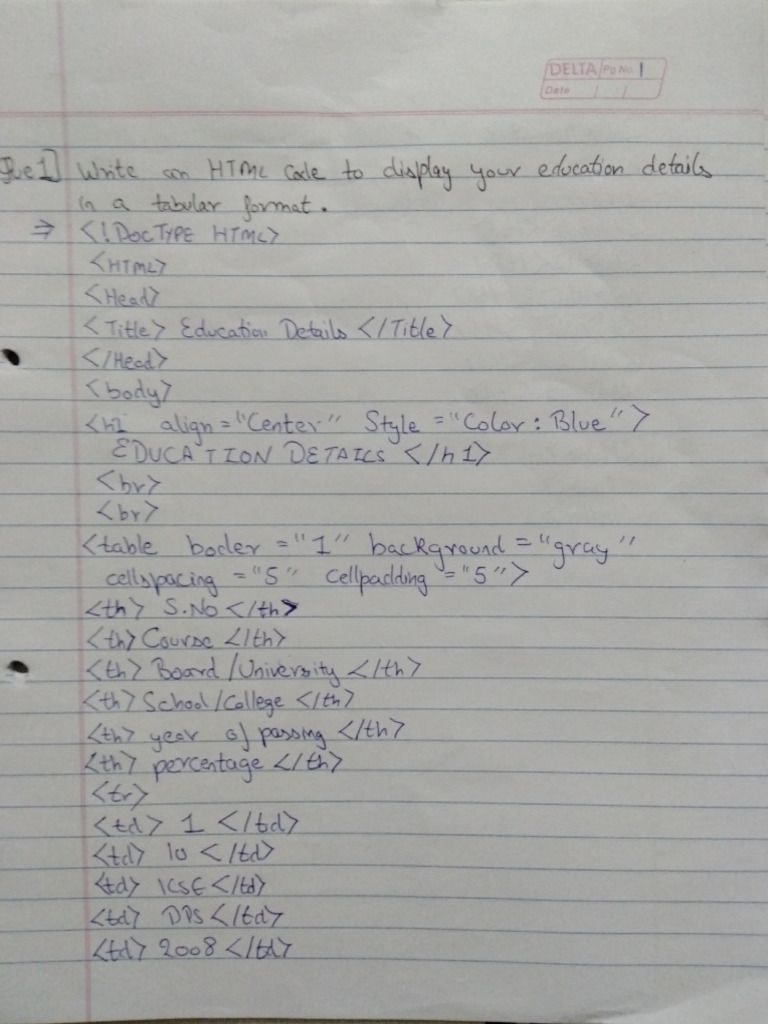 DELTA Pg No. 1
Date / /
Que 1] Write an HTML Code to display your education details
in a tabular format.
⇒ <!DOCTYPE HTML>
<HTML>
<Head>
<Title> Education Details </Title>
</Head>
<body>
<h1 align="Center" Style="Color: Blue">
EDUCATION DETAILS </h1>
<br>
<br>
<table boder="1" background="gray"
cellspacing="5" cellpadding="5">
<th> S.No </th>
<th> Course </th>
<th> Board/University </th>
<th> School/College </th>
<th> year of passing </th>
<th> percentage </th>
<tr>
<td> 1 </td>
<td> 10 </td>
<td> ICSE </td>
<td> DPS </td>
<td> 2008 </td>